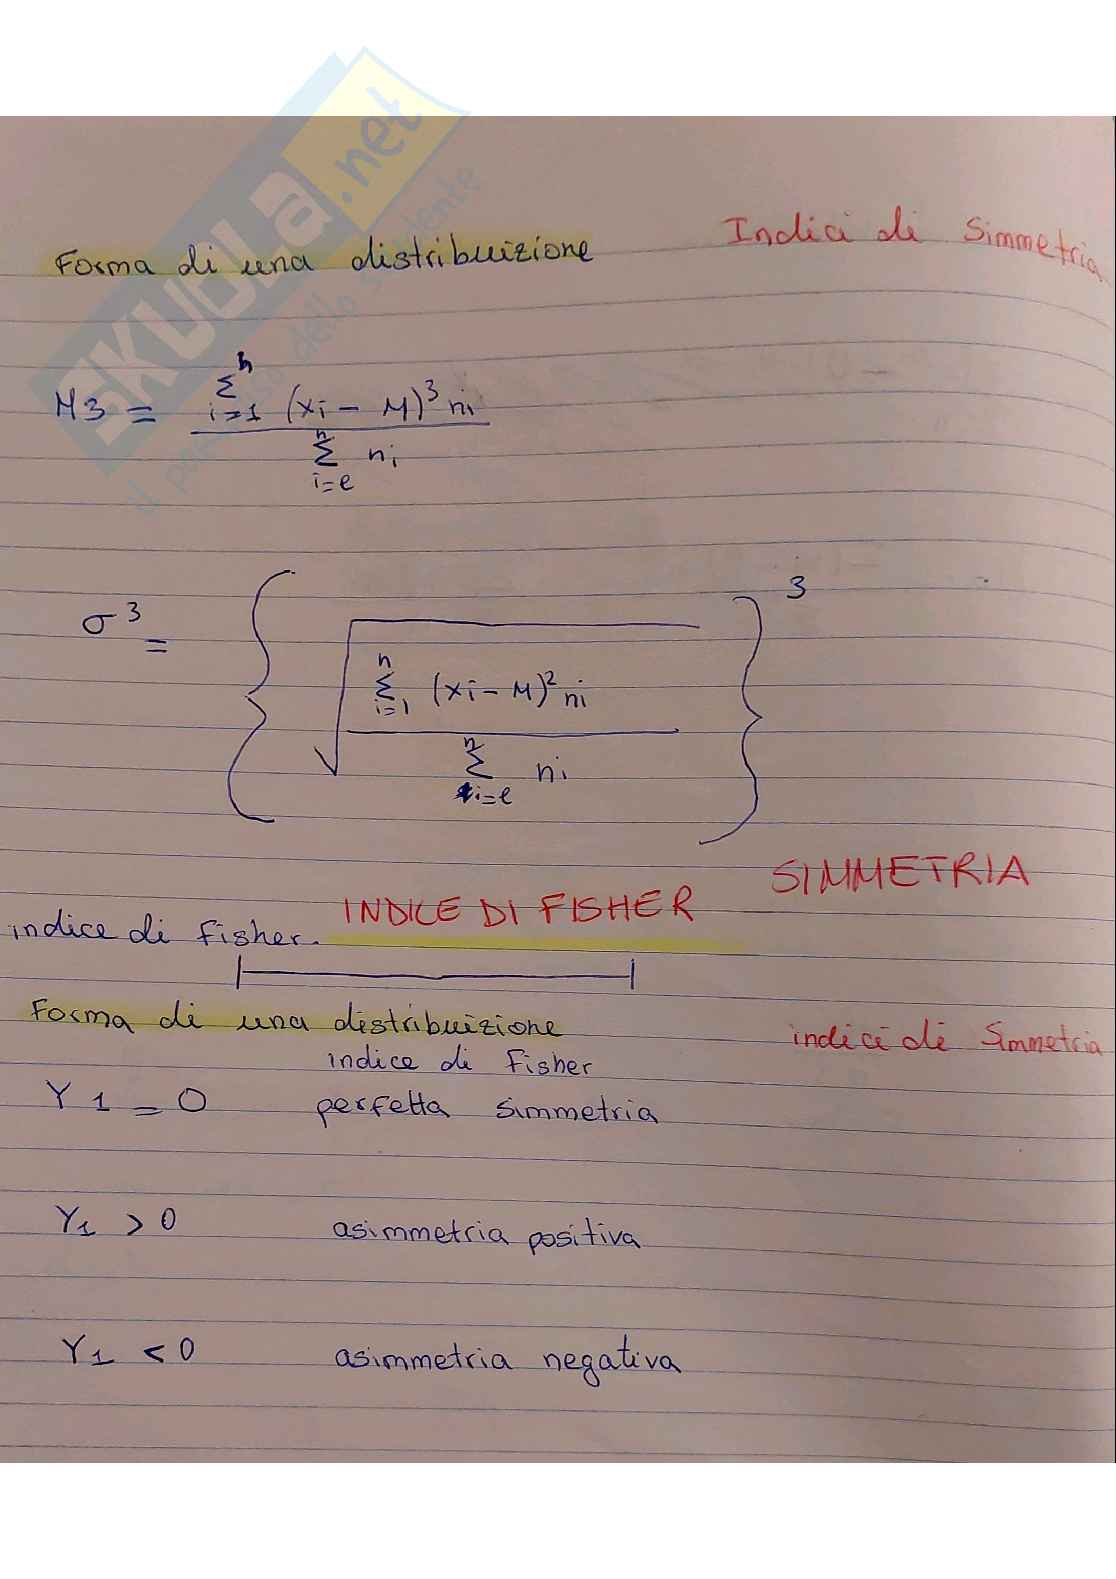 SKUOLA.net
Indici di Simmetria
Forma di una distribuizione
M3 = Σ^n i=1 (xi - M)^3 ni / Σ^n i=e ni
σ^3 = { √ Σ^n i=1 (xi - M)^2 ni / Σ^n i=e ni }^3
SIMMETRIA
indice di Fisher. INDICE DI FISHER
Forma di una distribuizione indici di Simmetria
indice di Fisher
Y1 = 0 perfetta simmetria
Y1 > 0 asimmetria positiva
Y1 < 0 asimmetria negativa